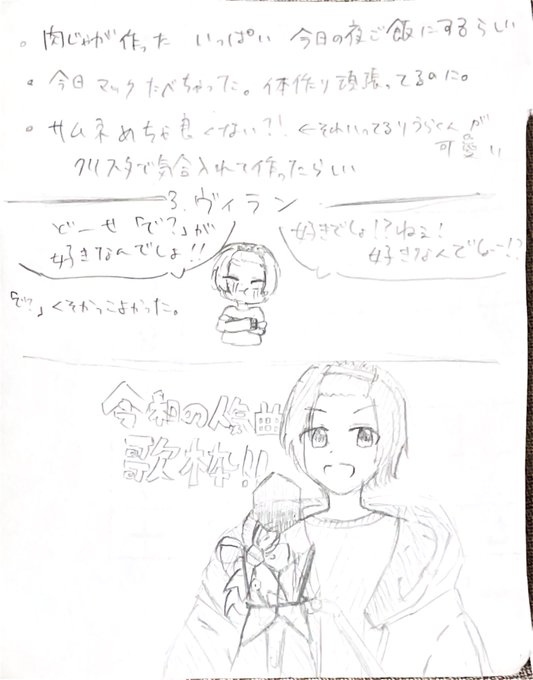 • 肉じゃが作った いっぱい 今日の夜ご飯にするらしい
• 今日マックたべちゃった。体作り頑張ってるのに。
• サムネめちゃ良くない?! ←それいってるりうらくんが可愛い
クリスタで気合入れて作ったらしい
3. ヴィラン
どーせ「で?」が
好きなんでしょ!!
好きでしょ!?ねぇ!
好きなんでしょー!?
「で?」くそかっこよかった。
令和の人気曲
歌枠!!